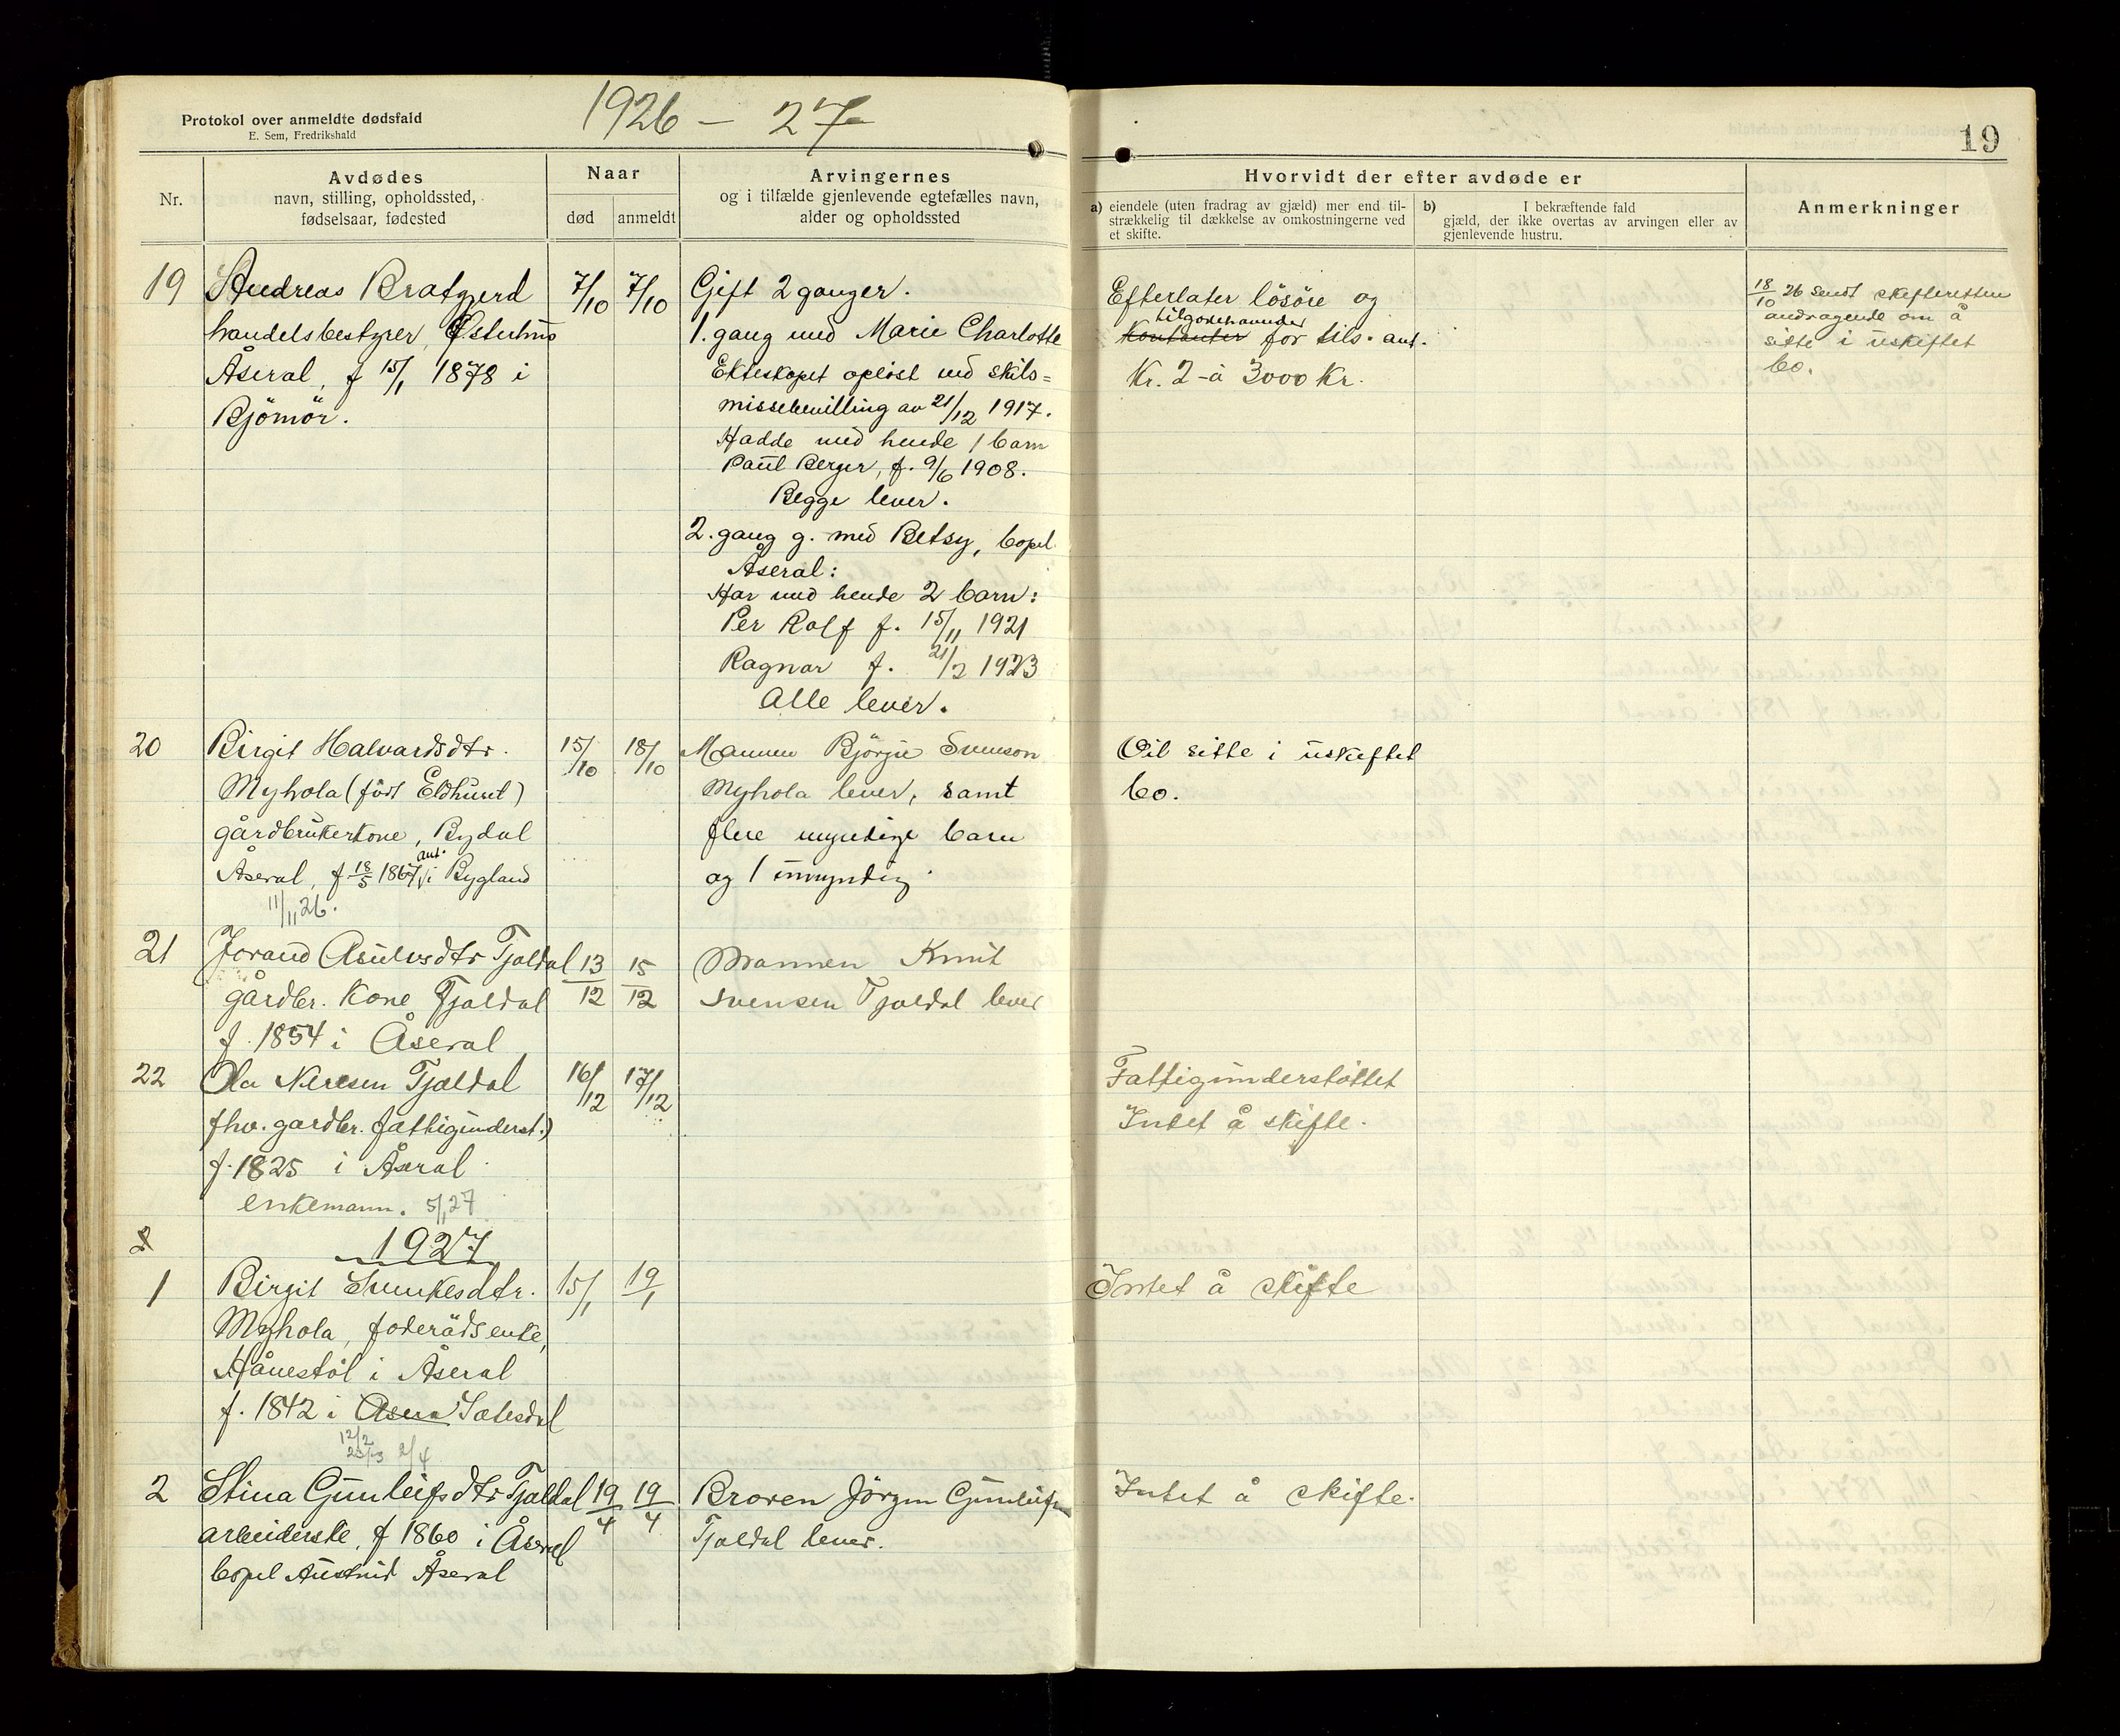 Protokol over anmeldte dødsfald
E. Sem, Fredrikshald
1926 - 27
19
Nr.
Avdødes
navn, stilling, opholdssted,
fødselsaar, fødested
Naar
død
anmeldt
Arvingernes
og i tilfælde gjenlevende egtefælles navn,
alder og opholdssted
Hvorvidt der efter avdøde er
a) eiendele (uten fradrag av gjæld) mer end til-
strækkelig til dækkelse av omkostningerne ved
et skifte.
b) I bekræftende fald
gjæld, der ikke overtas av arvingen eller av
gjenlevende hustru.
Anmerkninger
19 Andreas Bratgjerd
handelsbestyrer,
Åseral, f 15/1 1878 i
Bjömör.
7/10 7/10
Gift 2 ganger.
1. gang med Marie Charlotte
Ekteskapet oplöst ved skils=
missebevilling av 21/12 1917.
Hadde med hende 1 barn
Paul Berger, f. 9/6 1908.
Begge lever.
2. gang g. med Betsy, bopel
Åseral:
Har med hende 2 barn:
Per Rolf f. 15/11 1921
Ragnar f. 21/2 1923
Alle lever.
Efterlater lösöre og
tilgodehavender
kontanter for tils. ant.
Kr. 2 à 3000 Kr.
18/10 26 sendt skifteretten
andragende om å
sitte i uskiftet
bo.
20 Birgit Halvardsdtr.
Myhola (født Eldhunt)
gårdbrukerkone, Bydal
ant.
Åseral, f 18/5 1867 i Bygland
11/11 26.
15/10 18/10
Mannen Björgu Svenson
Myhola lever, samt
flere myndige barn
og 1 umyndig
Vil sitte i uskiftet
bo.
21 Jorand Asulvsdtr Tjaldal
gårdbr. kone Tjaldal
f. 1854 i Åseral
13/12 15/12
Mannen Knut
Svensen Tjaldal lever
22 Ola Nilsen Tjaldal
fhv. gardbr. fattigunderst.)
f. 1825 i Åseral
enkemann. 5/1 27
16/12 17/12
Fattigunderstöttet
Intet å skifte.
1927
1 Birgit Sveinkesdtr.
Myhola, foderådsenke,
Hånestöl i Åseral
f. 1842 i Asera Setesdal
12/2
23/3 2/4
15/1 19/1
Intet å skifte
2 Stina Gunleifsdtr Tjaldal
arbeiderske, f 1860 i Åseral
bopel Austrud Åseral
19/4 19/4
Broren Jörgen Gunleifs
Tjaldal lever.
Intet å skifte.